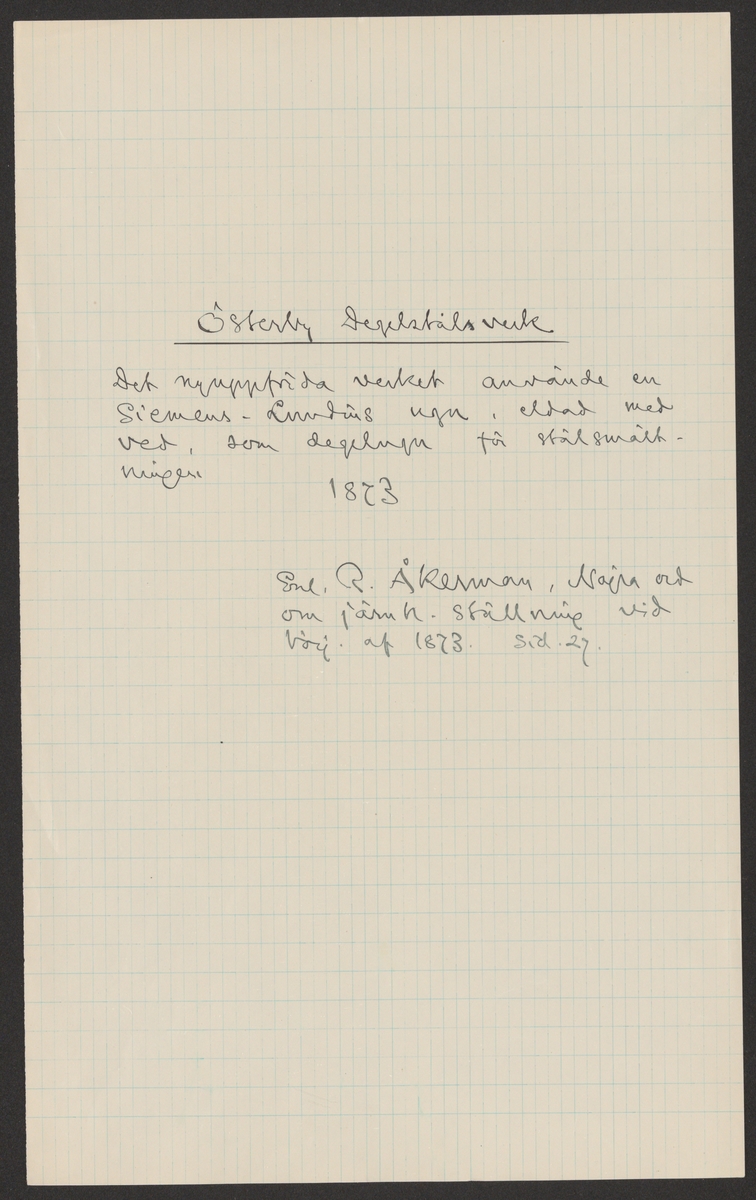 Österby Degelstålsverk
Det nyuppförda verket använde en
Siemens-Lundins ugn, eldad med
ved, som degelugn för stålsmält-
ningen
1873
Enl. R. Åkerman, Några ord
om järnh. ställning vid
börj. af 1873. Sid. 27.